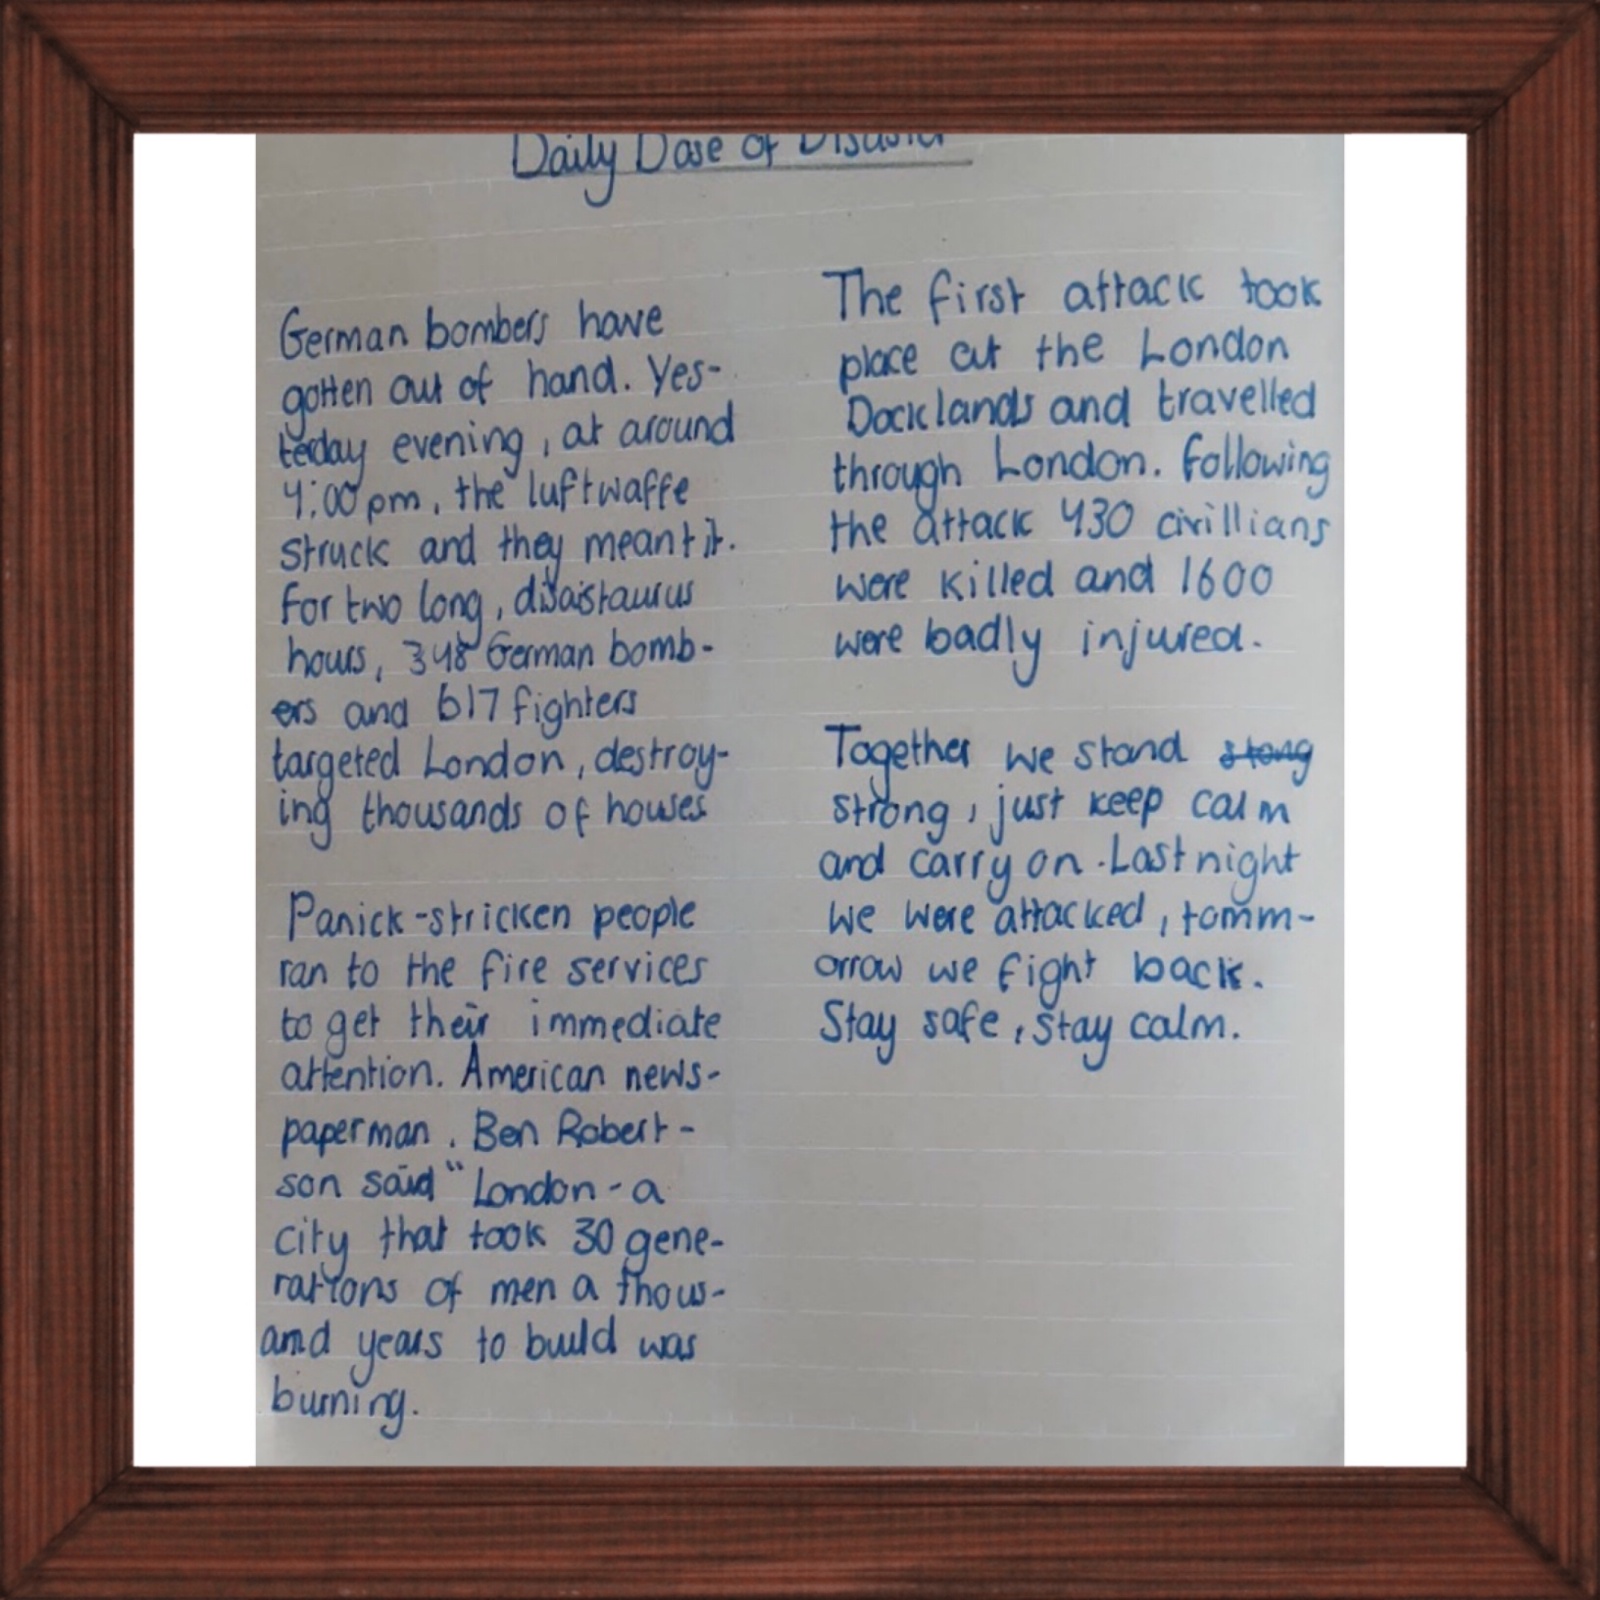 Daily Dose of Disaster
German bombers have
gotten out of hand. Yes-
terday evening, at around
4:00 pm, the luftwaffe
struck and they meant it.
For two long, disaistaurus
hours, 348 German bomb-
ers and 617 fighters
targeted London, destroy-
ing thousands of houses
Panick-stricken people
ran to the fire services
to get their immediate
attention. American news-
paperman. Ben Robert-
son said "London - a
city that took 30 gene-
rations of men a thous-
and years to build was
burning.
The first attack took
place at the London
Docklands and travelled
through London. Following
the attack 430 civillians
were killed and 1600
were badly injured.
Together we stand stong
strong, just keep calm
and carry on. Last night
we were attacked, tomm-
orrow we fight back.
Stay safe, stay calm.